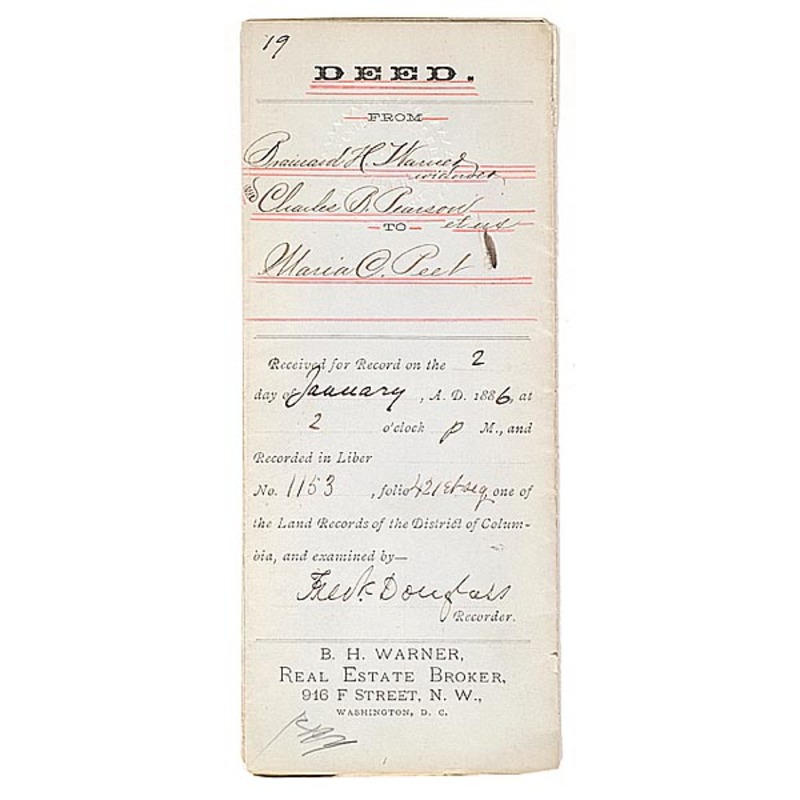 19
DEED.
FROM
Brainard H. Warner
and
Charles B. Pearson
et ux
TO
Maria C. Peet
Received for Record on the 2
day of January, A. D. 1886, at
2 o'clock P M., and
Recorded in Liber
No. 1153, folio 421 et seq, one of
the Land Records of the District of Colum-
bia, and examined by—
Fredk Douglass
Recorder.
B. H. WARNER,
REAL ESTATE BROKER,
916 F STREET, N. W.,
WASHINGTON, D. C.